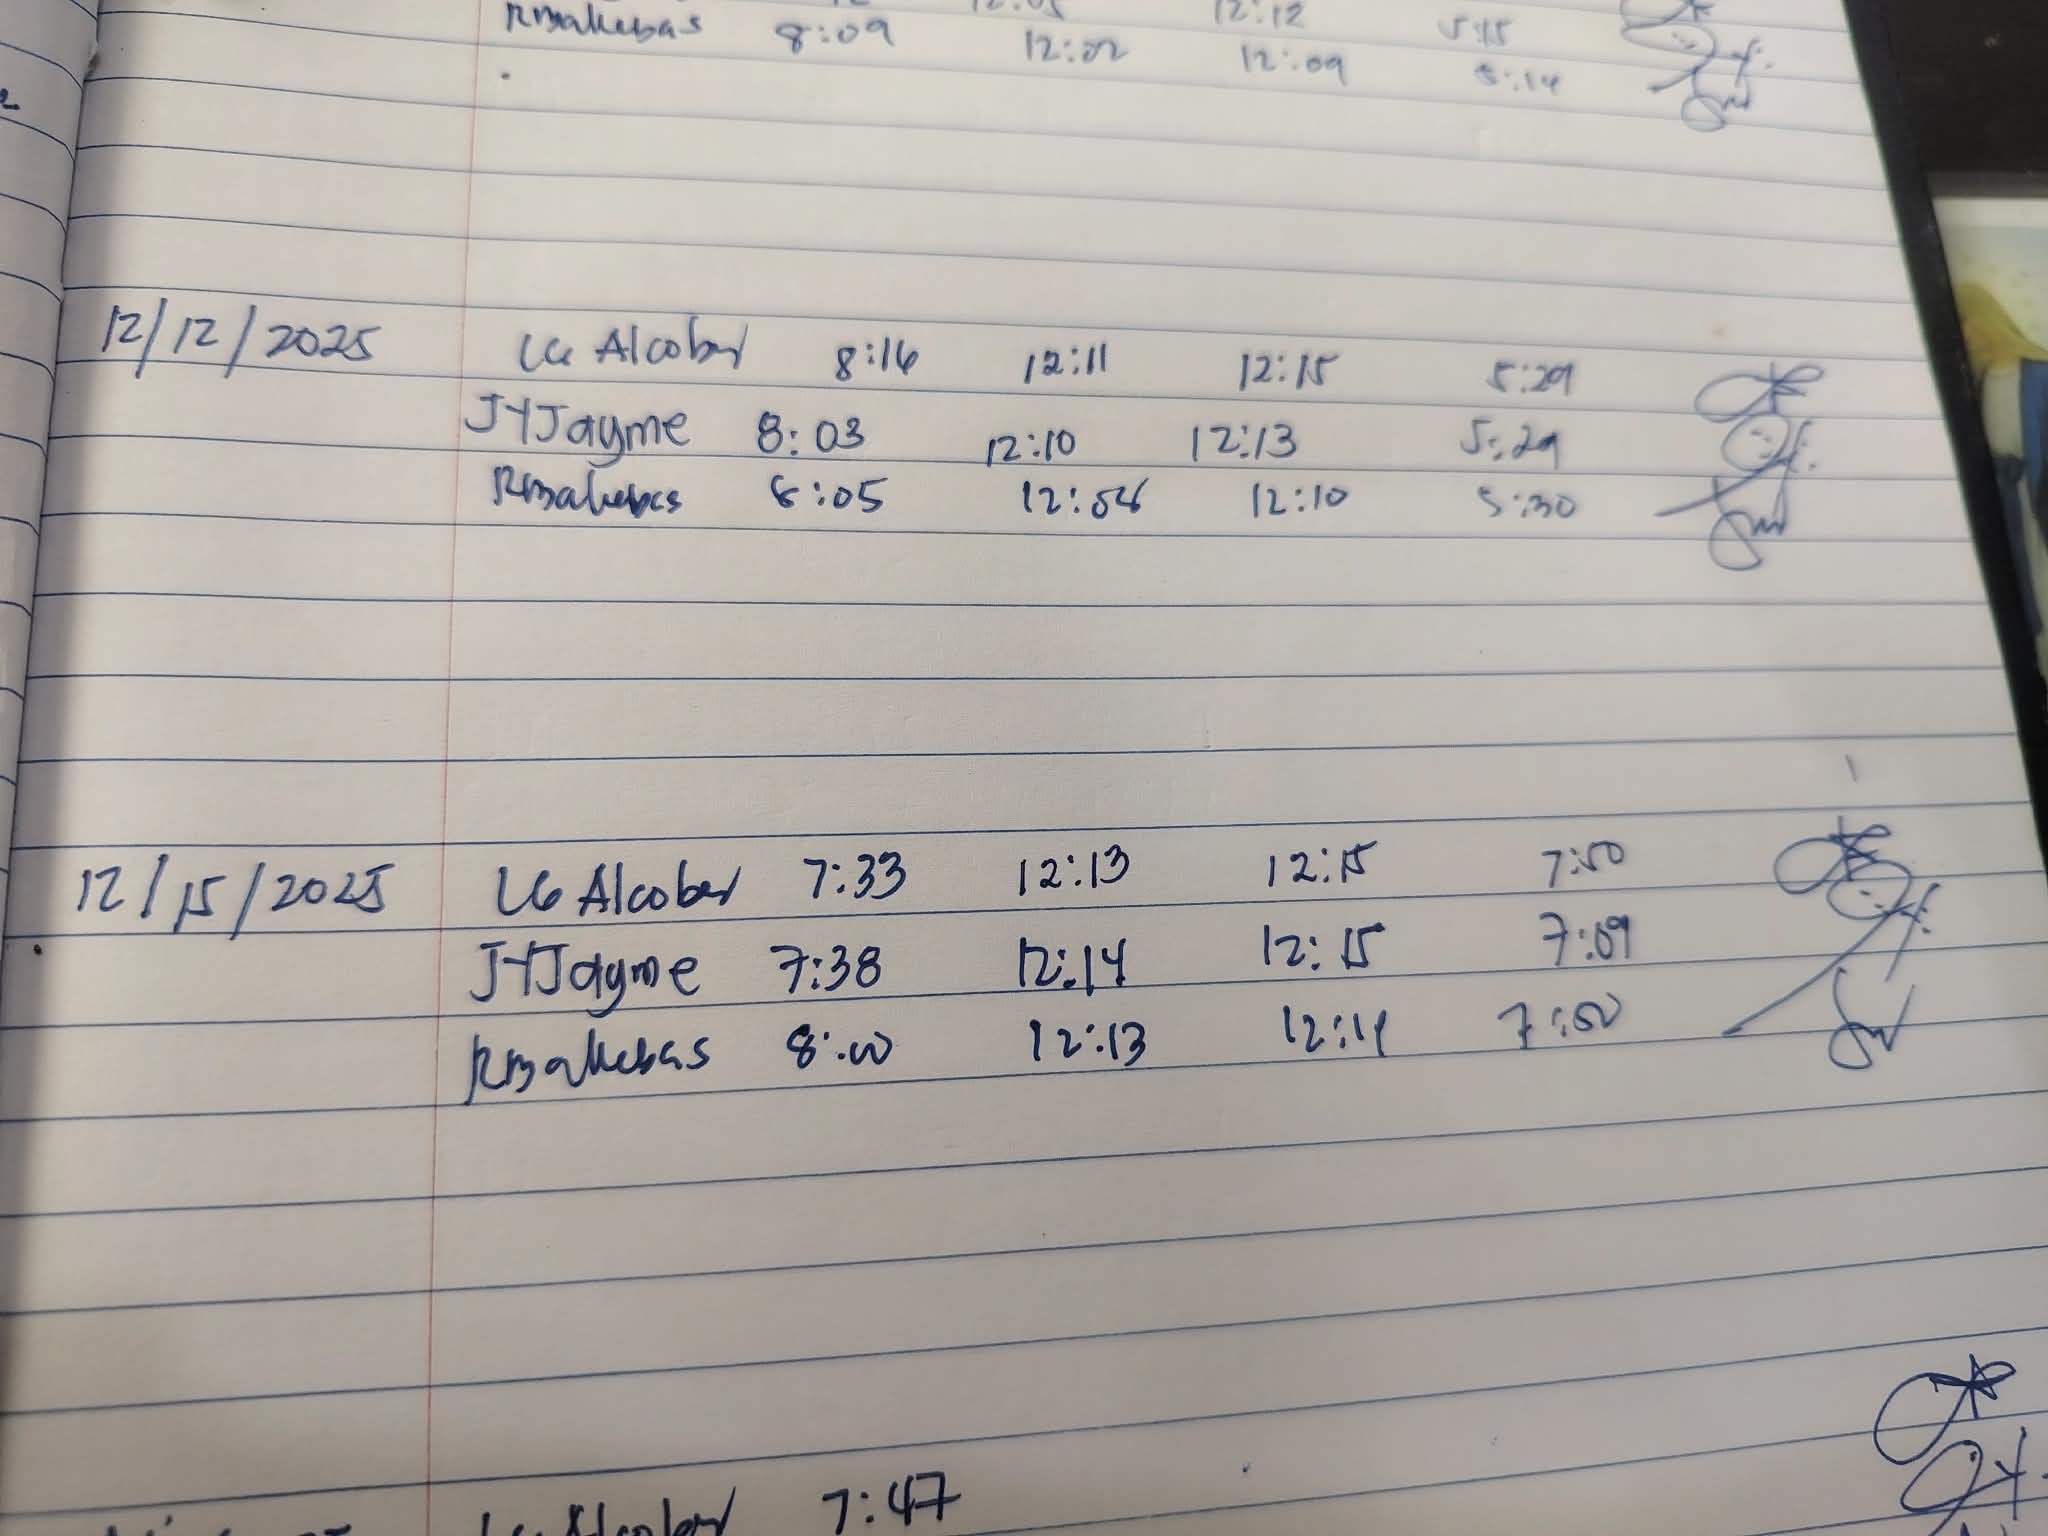 12:12 5:15
RMakebas 8:09 12:02 12:09 5:14
12/12/2025 LG Alcober 8:16 12:11 12:15 5:29
JYJayme 8:03 12:10 12:13 5:29
8:05 12:10 5:30
12/15/2025 LG Alcober 7:33 12:13 12:15 7:50
JYJayme 7:38 12:14 12:15 7:09
8:00 12:13 12:14
LG Alcober 7:47